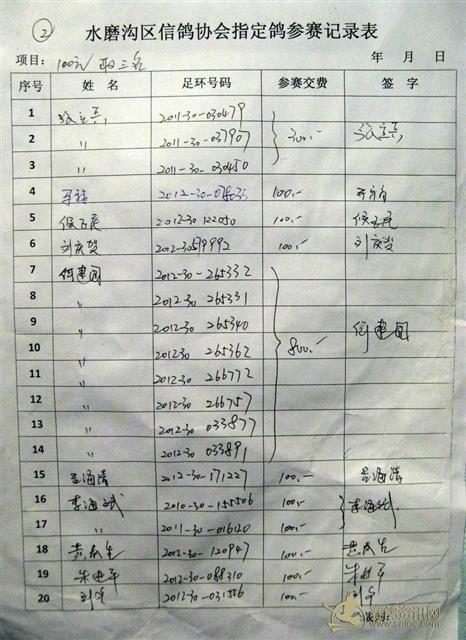 ②
水磨沟区信鸽协会指定鸽参赛记录表
项目: 100元 取三名 年 月 日
序号 姓 名 足环号码 参赛交费 签 字
1 2011-30-030479
2 〃 2011-30-037907 300.-
3 〃 2011-30-030450
4 2012-30- 100.-
5 2012-30 122050 100.-
6 刘庆贺 2012-30519992 100.- 刘庆贺
7 何建国 2012-30-265332
8 〃 2012-30. 265331
9 〃 2012-30 265340 何建国
10 〃 2012-30 265362 800.-
11 〃 2012-30 266772
12 〃 2012-30 266757
13 〃 2012-30 033877
14 〃 2012-30 033891
15 吕海清 2012-30-171227 100.- 吕海清
16 李海斌 2010-30-155506 100.- 李海斌
17 〃 2011-30-016120 100.-
18 2012-30-120947 100.-
19 朱建平 2012-30-088310 100.- 朱建平
20 2012-30-031556 100.-